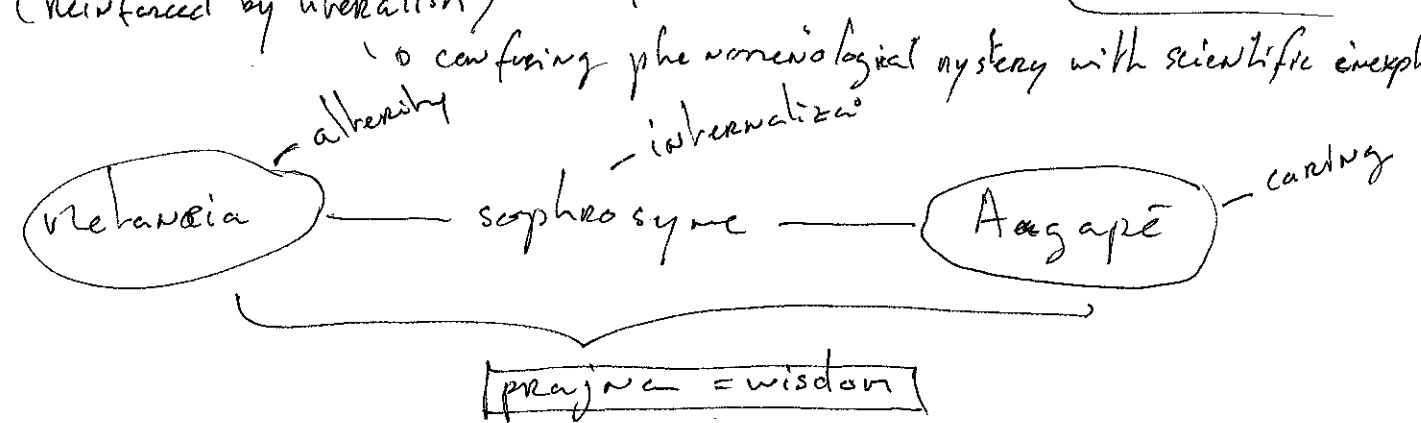 (Reinforced by liberalism)
confusing phenomenological mystery with scientific inexpl
alterity
internaliza°
caring
Metanoia — sophrosyne — Aagapē
prajna = wisdom